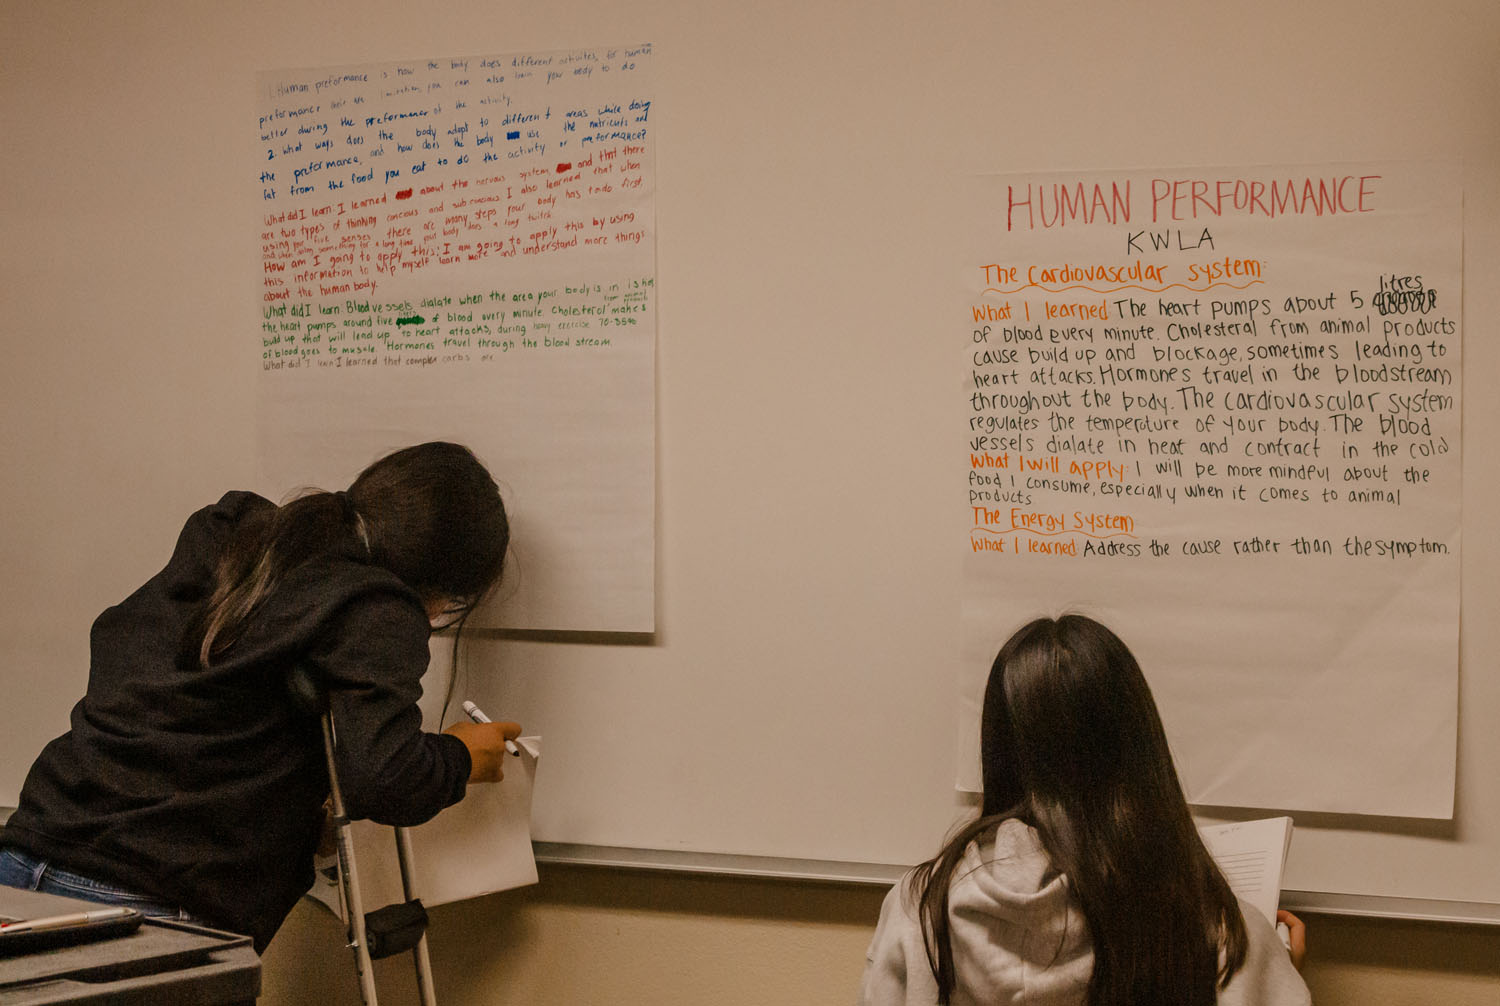 1. Human preformance is how the body does different activites, for human
preformance their are limitations you can also train your body to do
better during the preformance of the activity.
2. What ways does the body adapt to different areas while doing
the preformance, and how does the body use the nutrients and
fat from the food you eat to do the activity or preformance?
What did I learn: I learned about the nervous system, and that there
are two types of thinking concious and subconcious. I also learned that when
using your five senses there are many steps your body has to do first,
and when doing something for a long time your body does a long
How am I going to apply this: I am going to apply this by using
this information to help myself learn more and understand more things
about the human body.
What did I learn: Blood vessels dialate when the area your body is in is hot
the heart pumps around five litres of blood every minute. Cholesterol from animal products makes
build up that will lead up to heart attacks, during heavy exercise 70-85%
of blood goes to muscle. Hormones travel through the blood stream.
What did I learn: I learned that complex carbs are
HUMAN PERFORMANCE
KWLA
The Cardiovascular system:
What I learned: The heart pumps about 5 litres
of blood every minute. Cholesteral from animal products
cause build up and blockage, sometimes leading to
heart attacks. Hormones travel in the bloodstream
throughout the body. The cardiovascular system
regulates the temperature of your body. The blood
vessels dialate in heat and contract in the cold
What I will apply: I will be more mindful about the
food I consume, especially when it comes to animal
products
The Energy System
What I learned: Address the cause rather than the symptom.